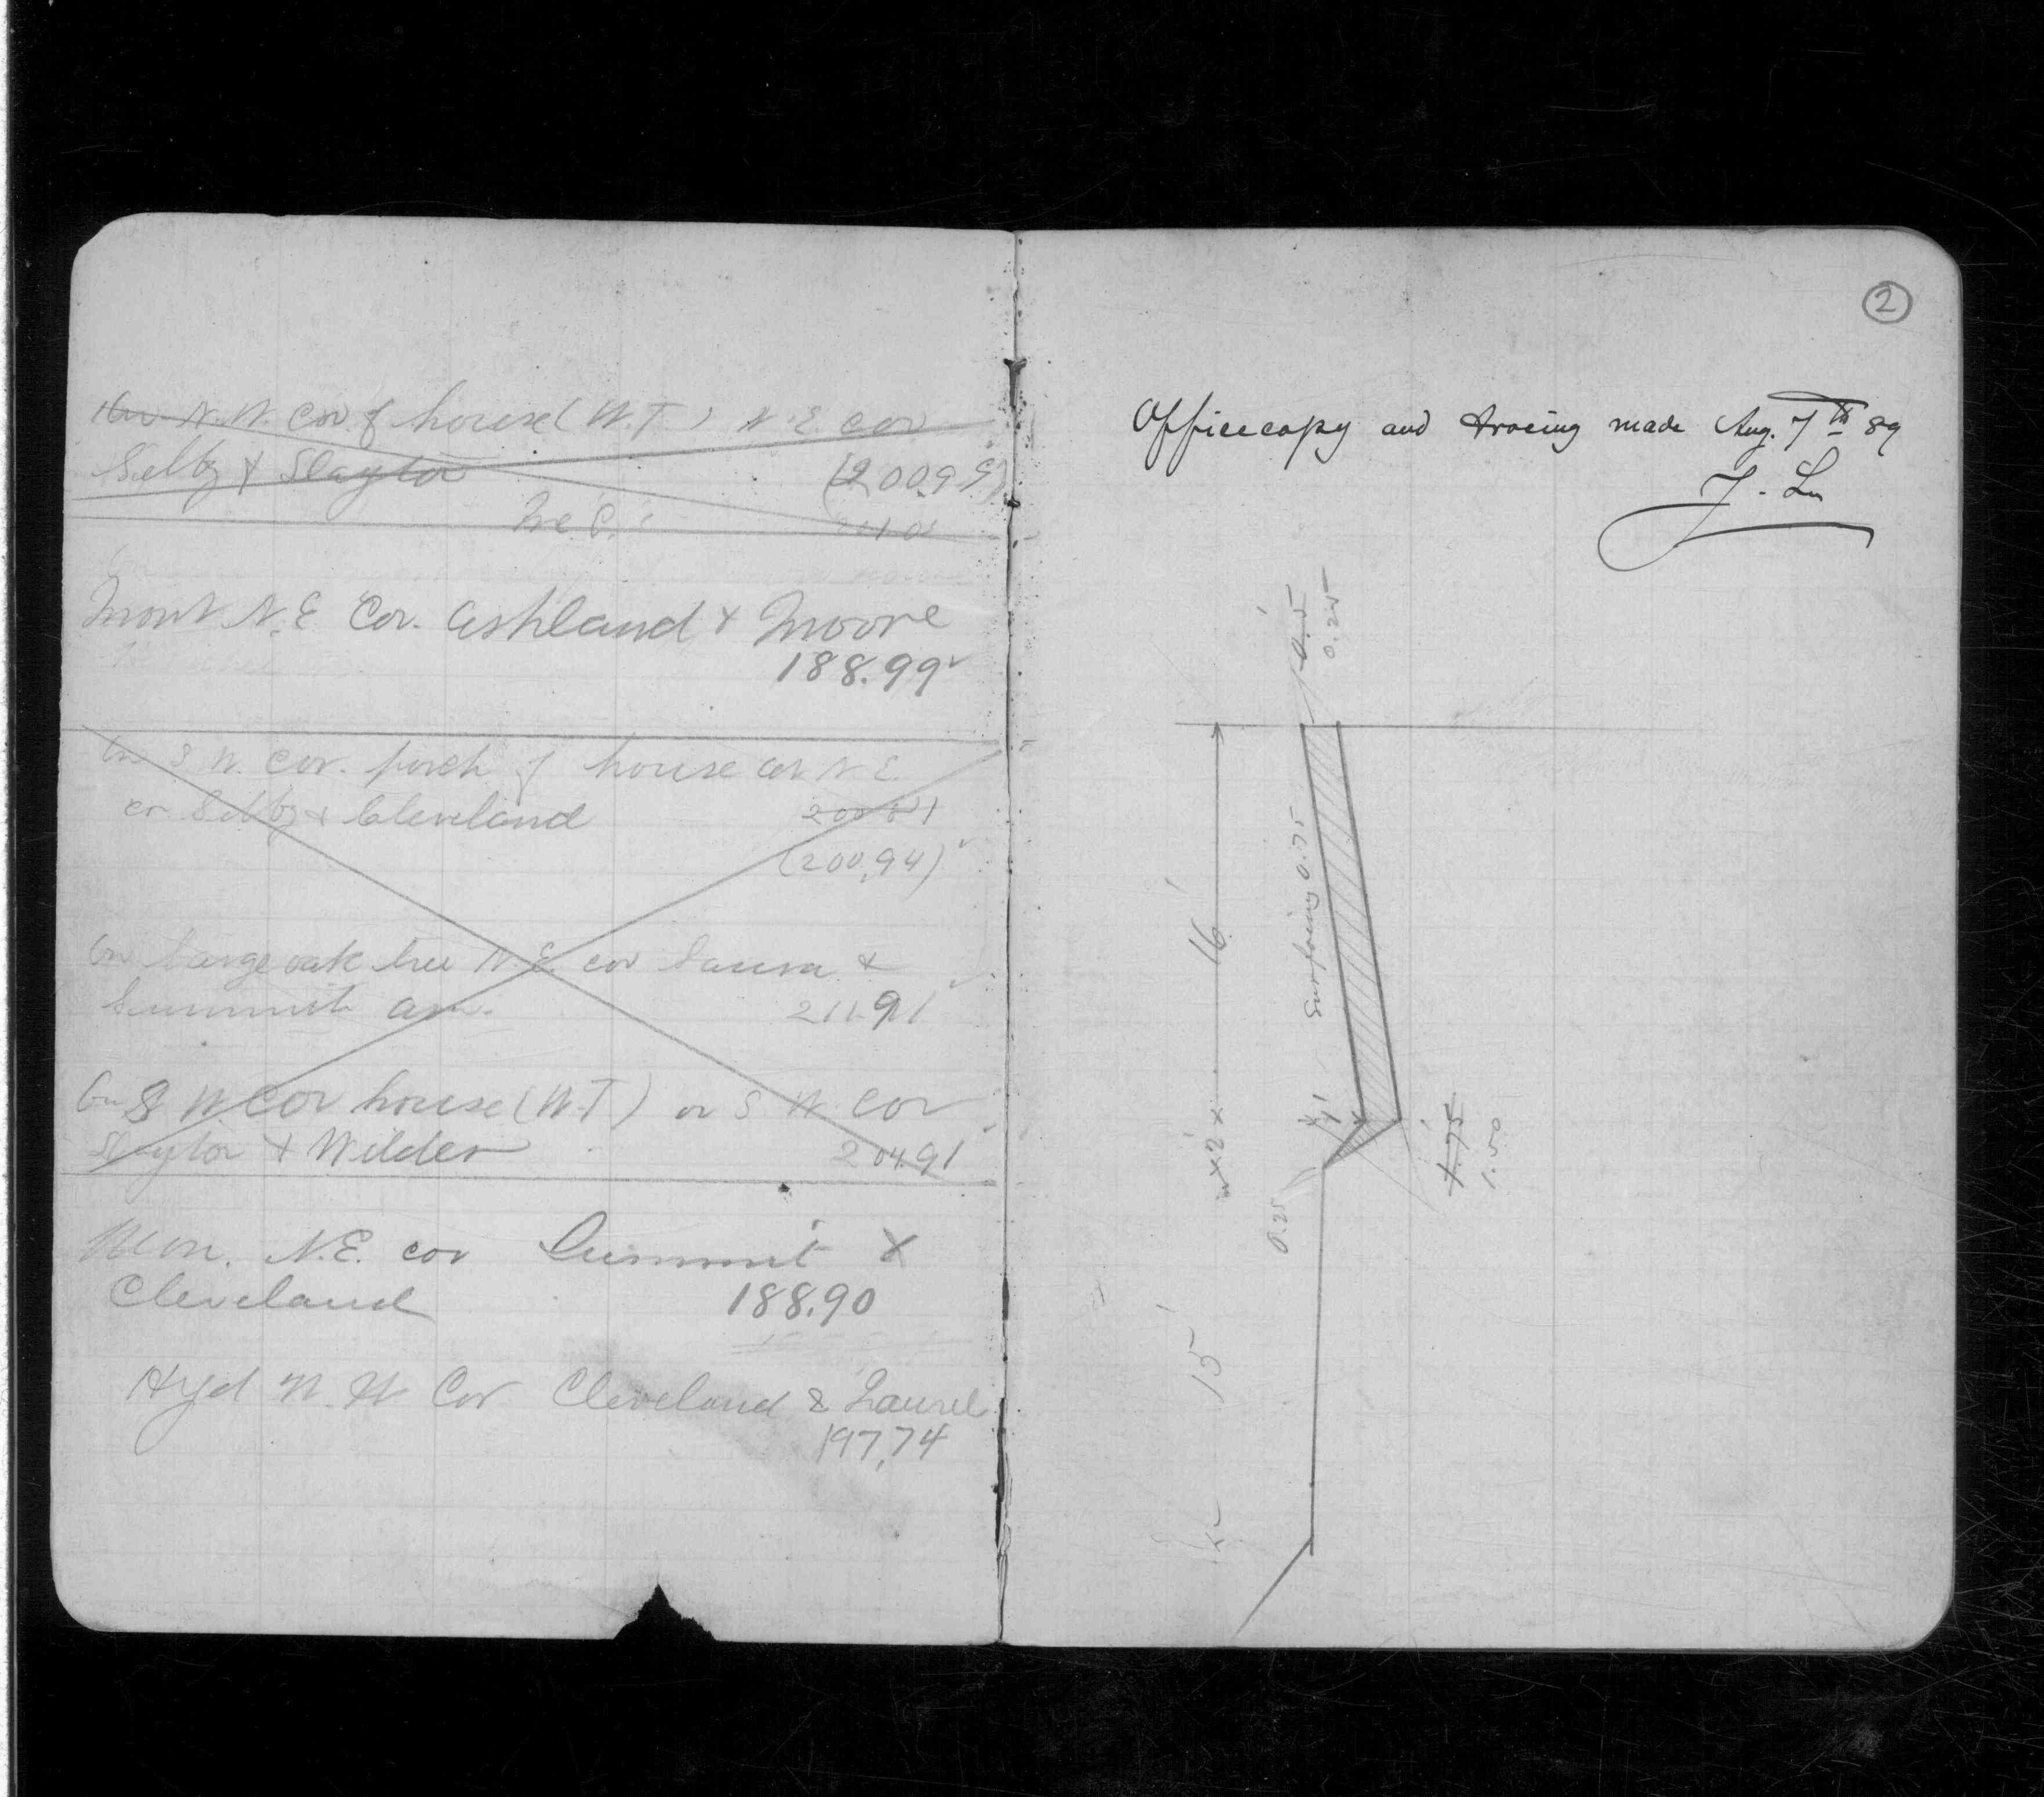 N.W. Cor of house (W.T.) N.E. cor
Selby & Slayton (200.95)
Mont N.E. Cor. Ashland & Moore
188.99
On S W. Cor. porch of house on N E.
cor Selby & Cleveland 200.81
(200.94)
On large oak tree N.E. cor &
Summit ave. 211.91
On S W Cor house (W.T) on S W Cor
Slayton & Wilder 204.91
Mon. N.E. cor Summit &
Cleveland 188.90
Hyd N. W Cor Cleveland & Laurel
197.74
2
Officecopy and tracing made Aug. 7th 89
0.5'
0.25
16'
Surfacing 0.75
1'
2'
1.75'
1.50
0.25
15'